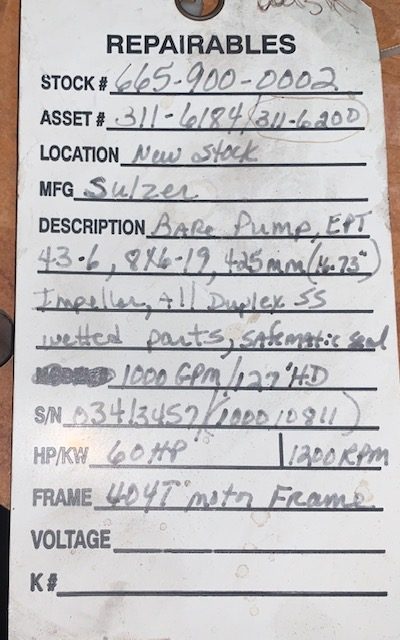 REPAIRABLES
STOCK # 665-900-0002
ASSET # 311-6184/311-6200
LOCATION New Stock
MFG Sulzer
DESCRIPTION BARe Pump, EPT
43-6, 8X6-19, 425mm (16.73")
Impeller, All Duplex SS
wetted parts, SAfematic seal
1000 GPM/127'HD
S/N 03413457 (100010811)
HP/KW 60HP 1200 RPM
FRAME 404T motor Frame
VOLTAGE
K #